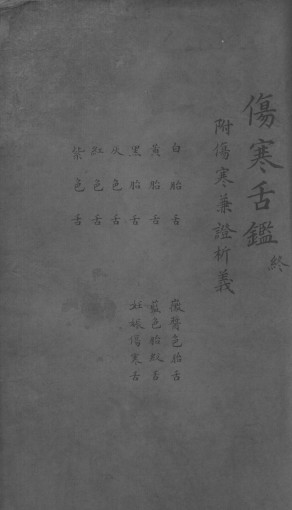 傷寒舌鑑終
附傷寒兼證析義
白胎舌
黃胎舌
黑胎舌
灰色舌
紅色舌
紫色舌
黴醬色胎舌
藍色胎紋舌
妊娠傷寒舌